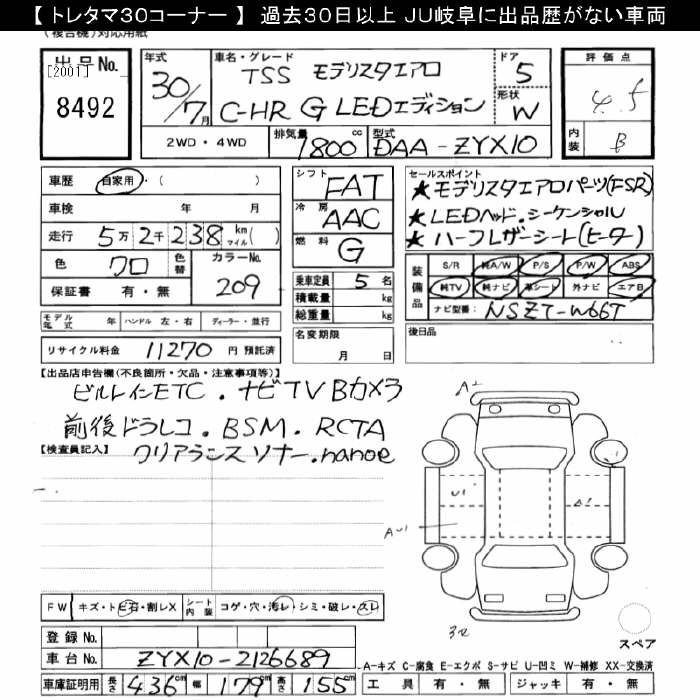 【 トレタマ30コーナー 】 過去30日以上 JU岐阜に出品歴がない車両
(複合機)対応用紙
出品No.
[2001]
8492
年式
30/7月
車名・グレード
TSS モデリスタエアロ
C-HR G LEDエディション
ドア
5
形状
W
評価点
4.5
内装
B
2WD・4WD
排気量
1800cc
型式
DAA-ZYX10
車歴 自家用・( )
車検 年 月
走行 5万2千238 km マイル( )
色 クロ 色替 カラーNo. 209
保証書 有・無
シフト FAT
冷房 AAC
燃料 G
乗車定員 5名
積載量 kg
総重量 kg
名変期限
月 日
セールスポイント
★モデリスタエアロパーツ(FSR)
★LEDヘッド.シーケンシャルU
★ハーフレザーシート(ヒーター)
装備品
S/R 純A/W P/S P/W ABS
純TV 純ナビ 革シート 外ナビ エアB
ナビ型番: NSZT-W66T
後日品
モデル年式 年 ハンドル 左・右 ディーラー・並行
リサイクル料金 11270 円 預託済
【出品店申告欄(不良箇所・欠品・注意事項等)】
ビルトインETC.ナビTV Bカメラ
前後ドラレコ.BSM.RCTA
クリアランスソナー.nanoe
【検査員記入】
A2
U1
A1
AU1
FW キズ・トビ石・割レX シート内装 コゲ・穴・汚レ・シミ・破レ・スレ
登録No.
車台No. ZYX10-2126689
車庫証明用 長さ 436cm 幅 179cm 高さ 155cm
スペア
A-キズ C-腐食 E-エクボ S-サビ U-凹ミ W-補修 XX-交換済
工具 有・無 ジャッキ 有・無